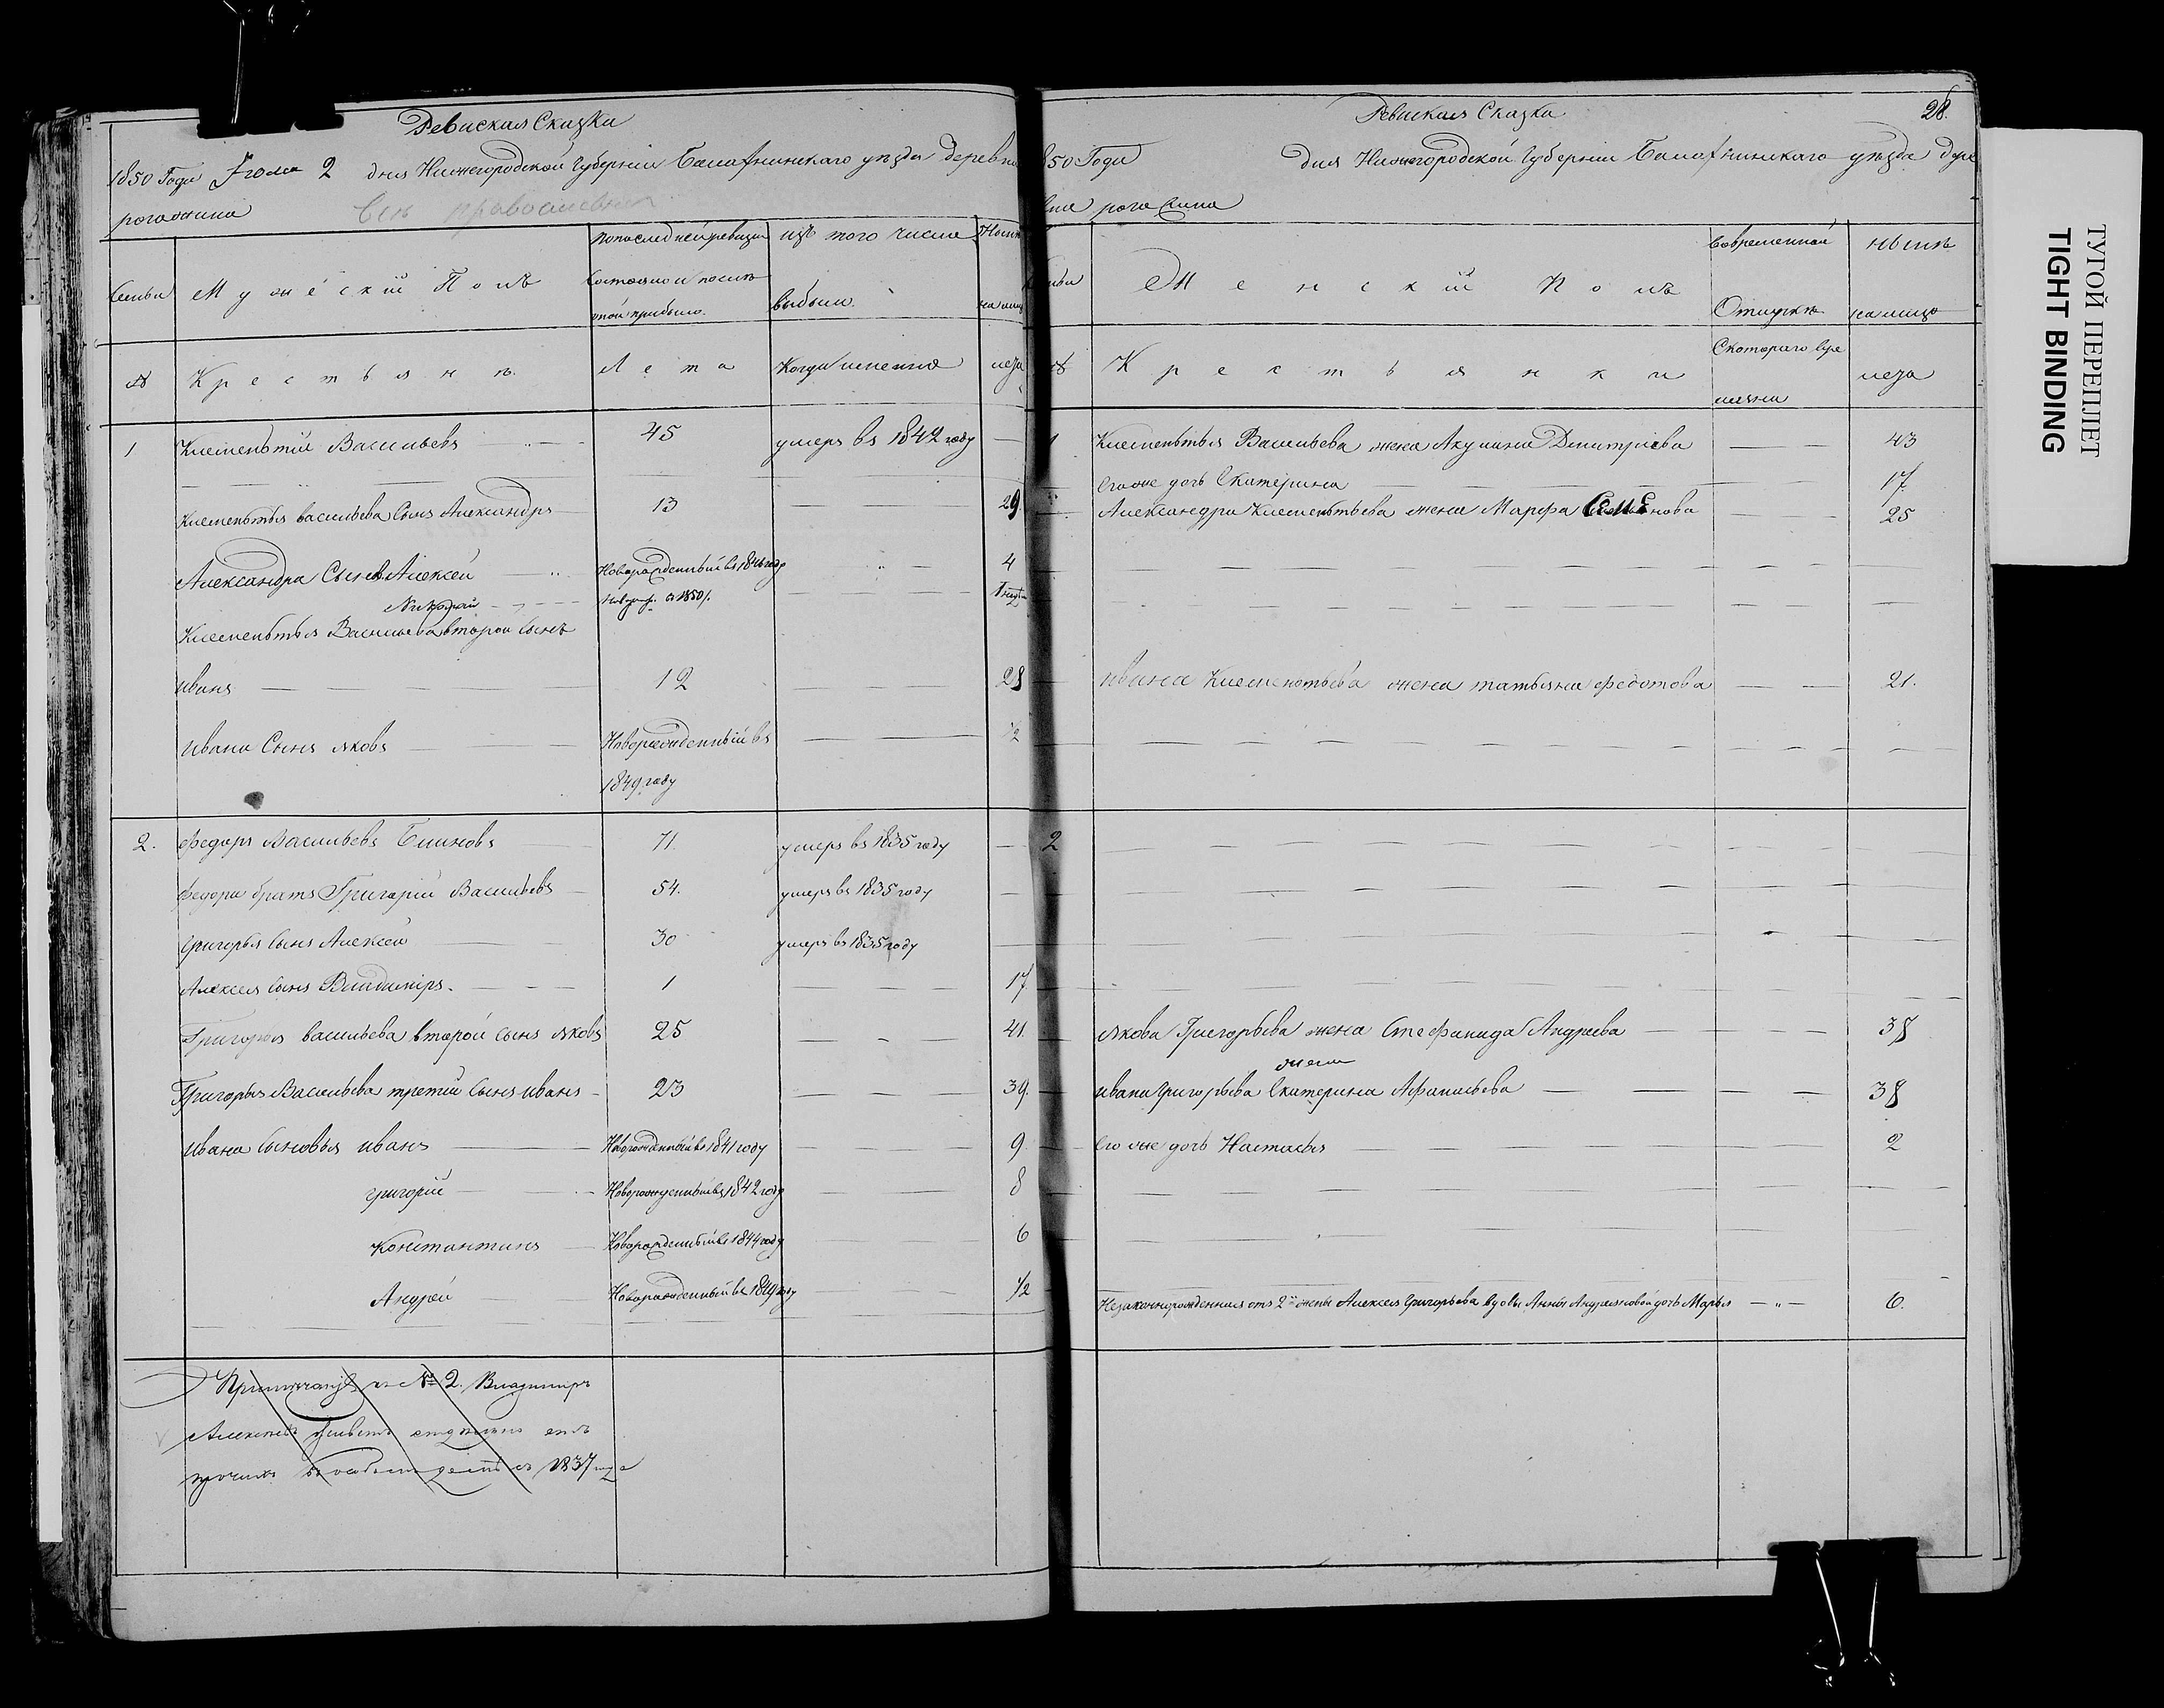 Ревиская Сказка
1850 Года Июля 2 дня Нижегородской Губернии Балахнинскаго уезда деревни
рогожина
все православныя
Семьи
Мужеский Полъ
По последней ревизии
Состояло и после
оной прибыло.
изъ того числа
выбыло.
Ныне
на лицо
№
Крестьяне.
Лета
Когда именно
лета
1 Клементий Васильевъ 45 умеръ въ 1842 году
Клементья васильева Сынъ Александръ 13 29
Александра Сынъ Алексей Новорожденный въ 1846 году 4
Новорож. въ 1850 г.
Клементья Васильева второй Сынъ
иванъ 12 28
ивана Сынъ яковъ Новорожденный въ 1/2
1849 году
2. Федоръ Васильевъ Блиновъ 71. умеръ въ 1835 году
Федора братъ Григорий Васильевъ 54. умеръ въ 1835 году
григорья Сынъ Алексей 30 умеръ въ 1835 году
Алексея Сынъ Владимiръ. 1 17
Григорья васильева второй сынъ яковъ 25 41.
Григорья Васильева третий Сынъ иванъ 23 39.
ивана Сыновья иванъ Новорожденный въ 1841 году 9
григорiй Новорожденный въ 1842 году 8
Константинъ Новорожденный въ 1844 году 6
Андрей Новорожденный въ 1849 году 1/2
Примечание къ № 2. Владимiръ
Алексеевъ живетъ отдельно отъ
прочихъ въ особомъ доме съ 1837 года
Ревиская Сказка
28.
850 Года дня Нижегородской Губернии Балахнинскаго уезда дере
вни рогожина
Семьи
Женский Полъ
Во временной
Отлучке
ныне
на лицо
№
Крестьянки
С котораго вре
мени
лета
1 Клементья Васильева жена Акулина Дмитриева 43
Его же дочь Екатерина 17.
Александра Клементьева жена Марфа Семенова 25
ивана Клементьева жена татьяна федотова 21.
2
якова Григорьева жена Стефанида Андреева 38
жена
ивана григорьева Екатерина Афанасьева 38
Его же дочь Настасья 2
Незаконнорожденная отъ 2й жены Алексея Григорьева вдовы Анны Андреяновой дочь Марья 6.
ТУГОЙ ПЕРЕПЛЕТ
TIGHT BINDING